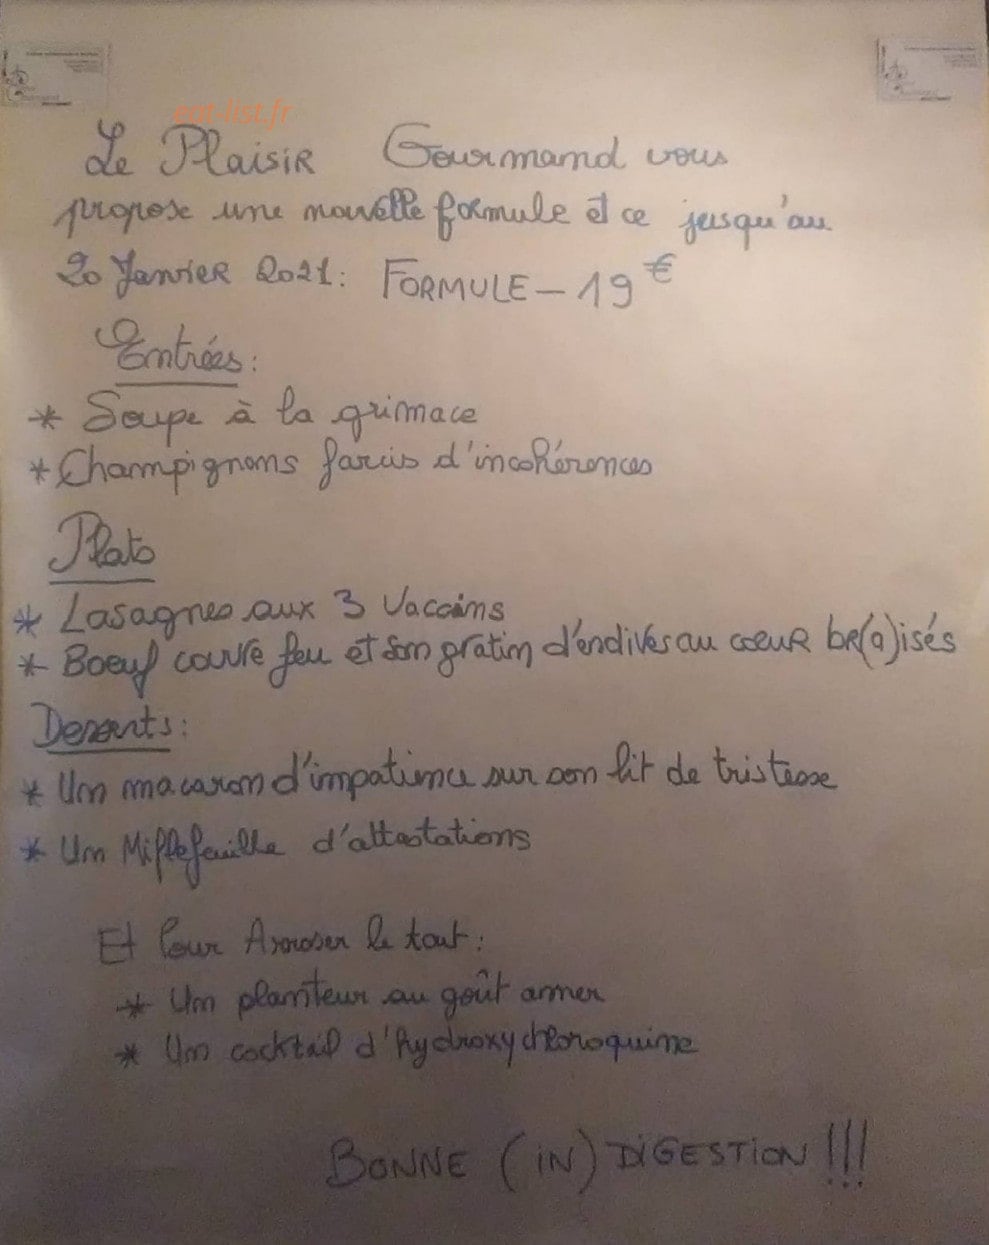 eat-list.fr
Le Plaisir Gourmand vous
propose une nouvelle formule et ce jusqu'au
20 Janvier 2021: FORMULE - 19 €
Entrées:
* Soupe à la grimace
* Champignons farcis d'incohérences
Plats
* Lasagnes aux 3 Vaccins
* Boeuf couvre feu et son gratin d'endives au coeur br(a)isés
Desserts:
* Un macaron d'impatience sur son lit de tristesse
* Un Millefeuille d'attestations
Et Pour Arroser le tout:
* Un planteur au goût amer
* Un cocktail d'hydroxychloroquine
BONNE (IN) DIGESTION !!!